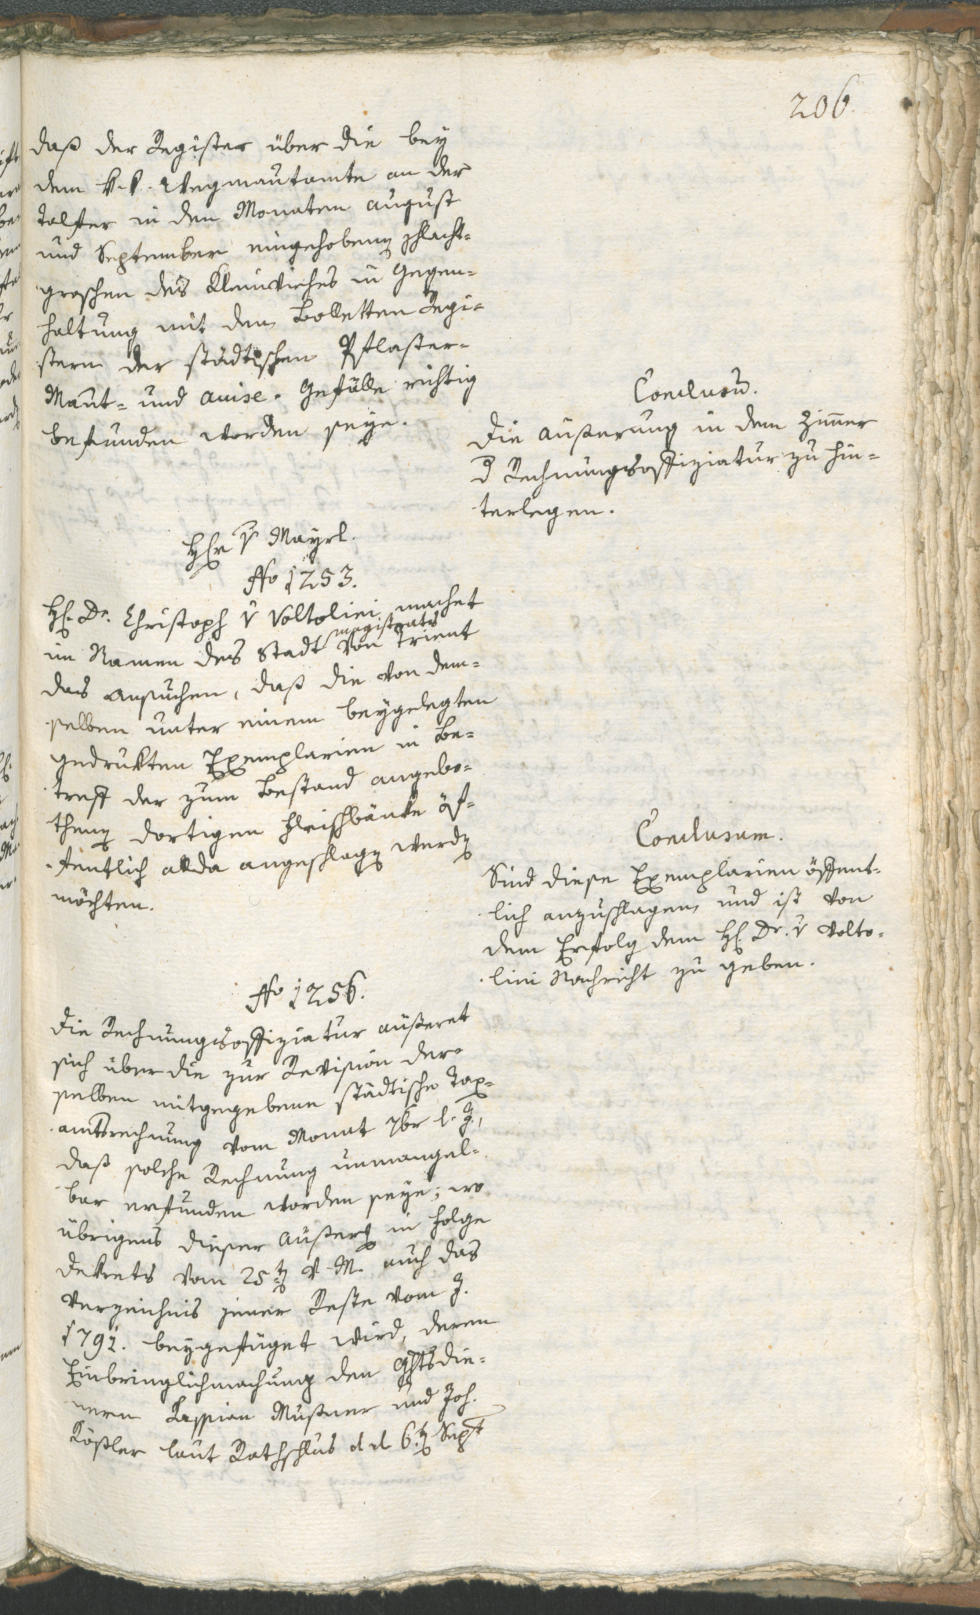 206.
daß der Register über die bey
dem k. k. Wegmautamte an der
Talfer in den Monaten August
und September eingehobenen Schlacht-
groschen des Kleinviehes in Gegen-
haltung mit den Bolletten Regi-
stern der städtischen Pflaster-
Maut- und Accise- Gefälle richtig
befunden worden seye.
Conclusum.
Die Äußerung in dem Zimer
d Rechnungsoffiziatur zu hin-
terlegen.
Hr v Mayrl.
No 1253.
H. Dr. Christoph v Voltolini machet
im Namen des Stadt magistrats von Trient
das Ansuchen, daß die von dem-
selben unter einem beygelegten
gedrukten Exemplarien in Be-
treff der zum Bestand angebo-
thenen dortigen Fleischbänke öf-
fentlich allda angeschlagen werden
möchten.
Conclusum.
Sind diese Exemplarien öffent-
lich anzuschlagen und ist von
dem Erfolg dem H. Dr. v Volto-
lini Nachricht zu geben.
No 1256.
Die Rechnungsoffiziatur äußeret
sich über die zur Revision der-
selben mitgegebene städtische Tax-
amtsrechnung vom Monat 7br l. J.,
daß solche Rechnung unmangel-
bar erfunden worden seye; wo
übrigens dieser Äußerung in Folge
Dekrets vom 25ten v. M. auch das
Verzeichnis jener Reste vom J.
1792. beygefüget wird, deren
Einbringlichmachung den Gerichtsdie-
nern Kassian Mußner und Joh.
Kößler laut Rathschlus dd 6ten Sept